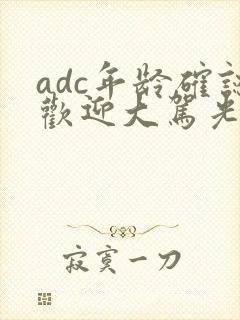 adc年龄確認
歡迎大駕光
寂寞一刀